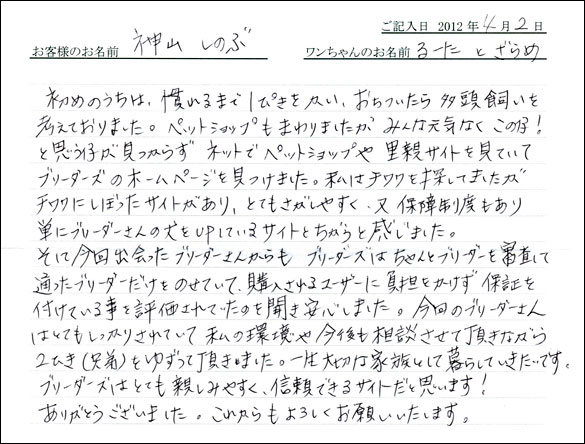 ご記入日 2012年4月2日
お客様のお名前 神山 しのぶ ワンちゃんのお名前 るーた と ざらめ
初めのうちは、慣れるまで1ぴきを飼い、おちついたら多頭飼いを
考えておりました。ペットショップもまわりましたが みんな元気なく この仔!
と思う仔が見つからず ネットでペットショップや里親サイトを見ていて
ブリーダーズのホームページを見つけました。私はチワワを探してましたが
チワワにしぼったサイトがあり、とてもさがしやすく、又 保障制度もあり
単にブリーダーさんの犬をUPしているサイトとちがうと感じました。
そして今回出会ったブリーダーさんからも ブリーダーズはちゃんとブリーダーを審査して
通ったブリーダーだけをのせていて、購入されるユーザーに負担をかけず 保証を
付けている事を評価されていたのを聞き安心しました。今回のブリーダーさん
はとてもしっかりされていて 私の環境や今後も相談させて頂きながら
2ひき(兄弟)をゆずって頂きました。一生大切な家族として暮らしていきたいです。
ブリーダーズはとても親しみやすく、信頼できるサイトだと思います!
ありがとうございました。これからもよろしくお願いいたします。